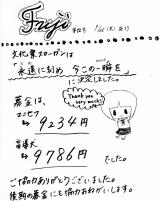 Fuji
文化祭スローガンは
永遠に刻め 今この一瞬を
に決定しました。
Thank you
very much!
募金は、
ユニセフ
→ 9234円
盲導犬
→ 9786円
でした。
ご協力ありがとうございました。
後期の募金にも協力おねがいします。